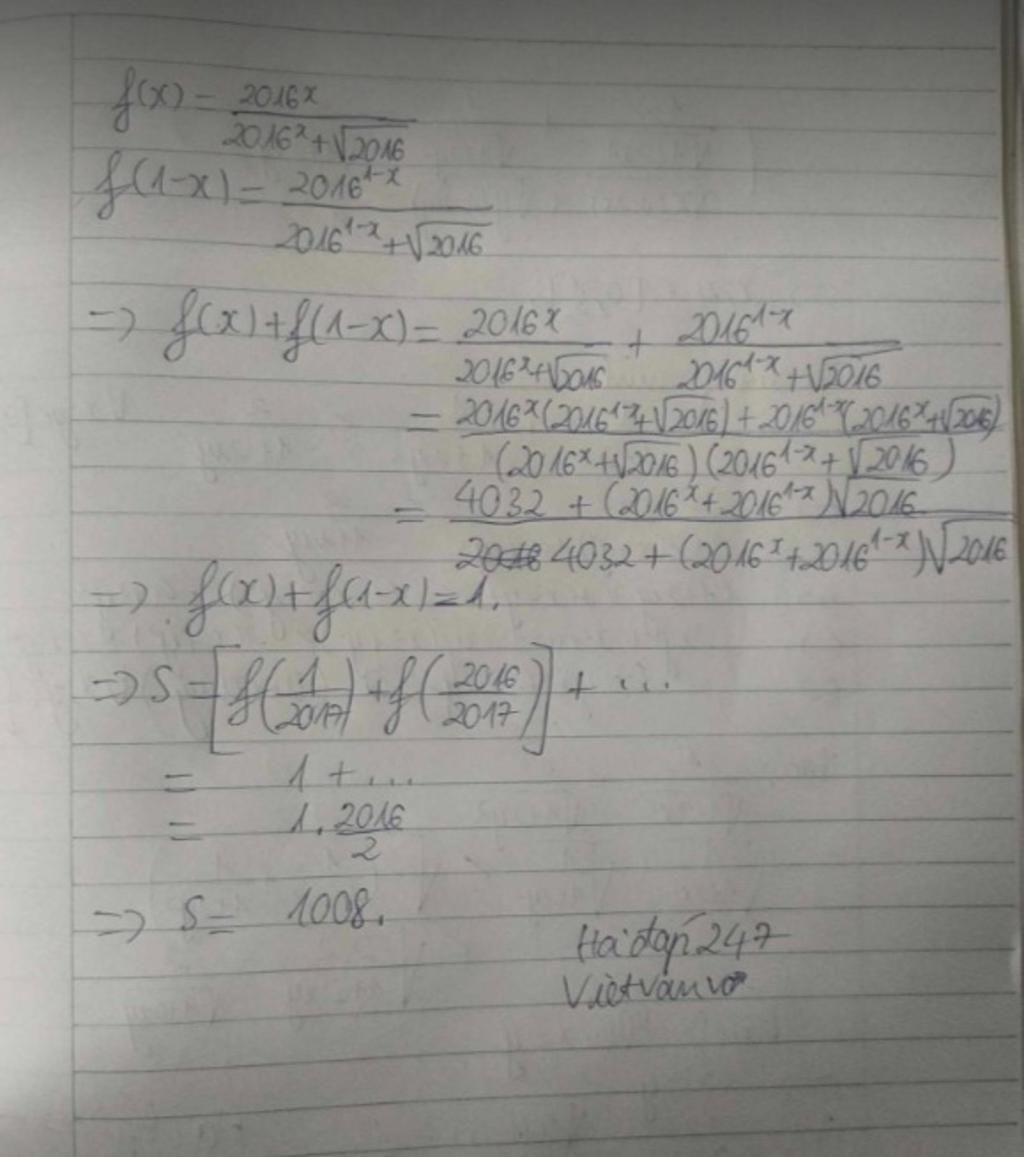 f(x) = 2016^x / (2016^x + √2016)
f(1-x) = 2016^(1-x) / (2016^(1-x) + √2016)
=> f(x) + f(1-x) = 2016^x / (2016^x + √2016) + 2016^(1-x) / (2016^(1-x) + √2016)
= [2016^x (2016^(1-x) + √2016) + 2016^(1-x) (2016^x + √2016)] / [(2016^x + √2016) (2016^(1-x) + √2016)]
= [4032 + (2016^x + 2016^(1-x)) √2016] / [4032 + (2016^x + 2016^(1-x)) √2016]
=> f(x) + f(1-x) = 1.
=> S = [f(1/2017) + f(2016/2017)] + ...
= 1 + ...
= 1 . 2016/2
=> S = 1008.
Hỏi đáp 247